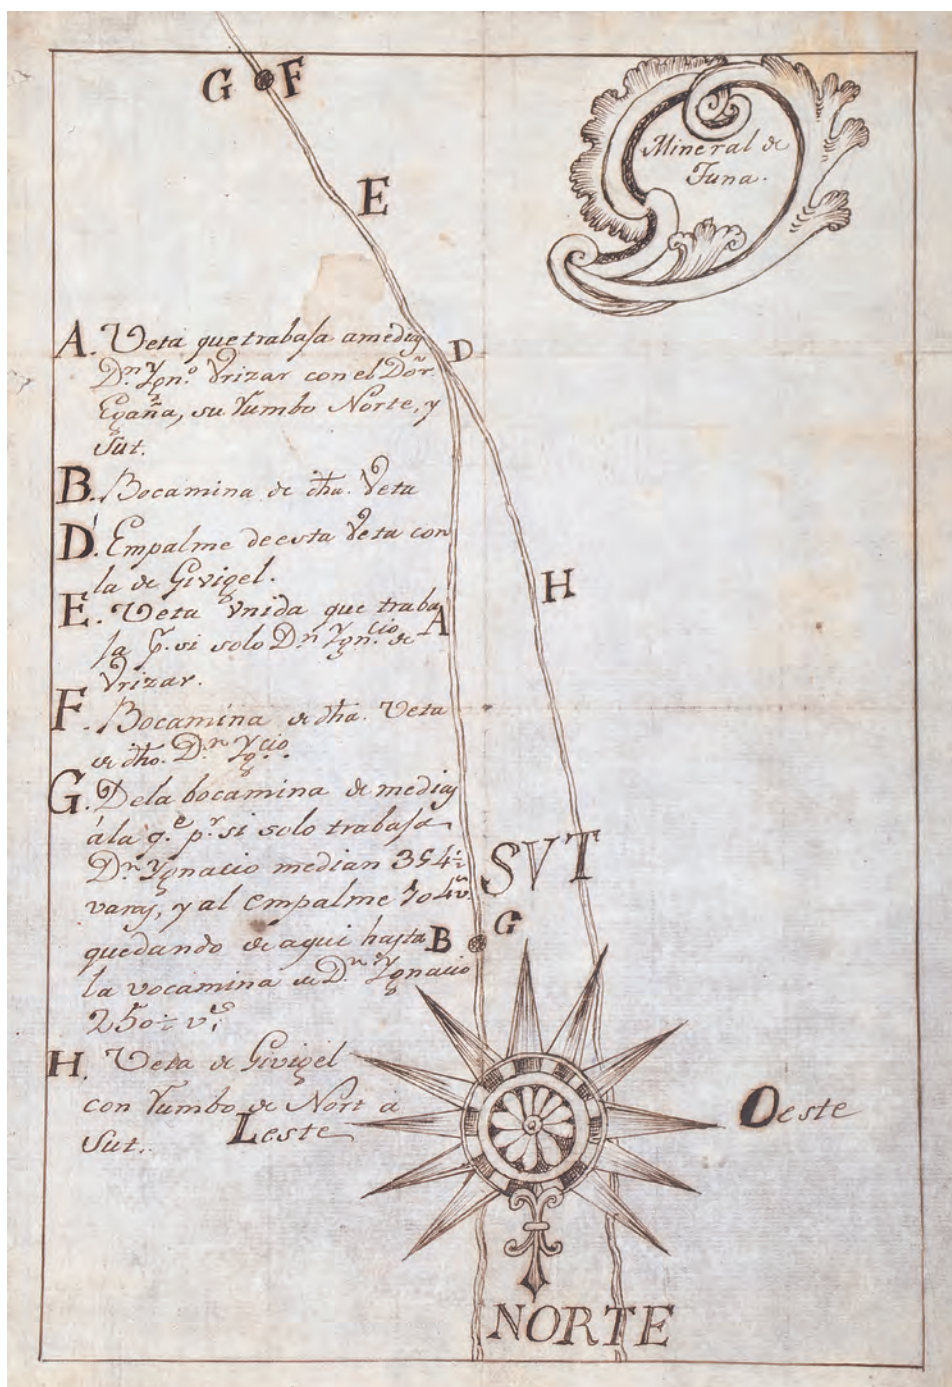 G F
Mineral de
Tuna.
E
A. Veta que trabaja amedias
D.n Ygn.o Vrizar con el Dõr
Egaña, su Rumbo Norte, y
Sut.
D
B. Bocamina de dha. Veta
D. Empalme de esta Veta con
la de Givigel.
H
E. Veta Vnida que traba
ja p.r si solo D.n Ygn.cio de
Vrizar.
A
F. Bocamina de dha. Veta
de dho. D.n Yg.cio.
G. Dela bocamina de medias
ála q.e p.r si solo trabaja
D.n Ygnacio median 354½
varas, y al empalme 104 v.s
quedando de aqui hasta
la vocamina de D.n Ygnacio
250½ v.s
SVT
B G
H. Veta de Givigel
con Rumbo de Nort à
Sut.
Leste
Oeste
NORTE